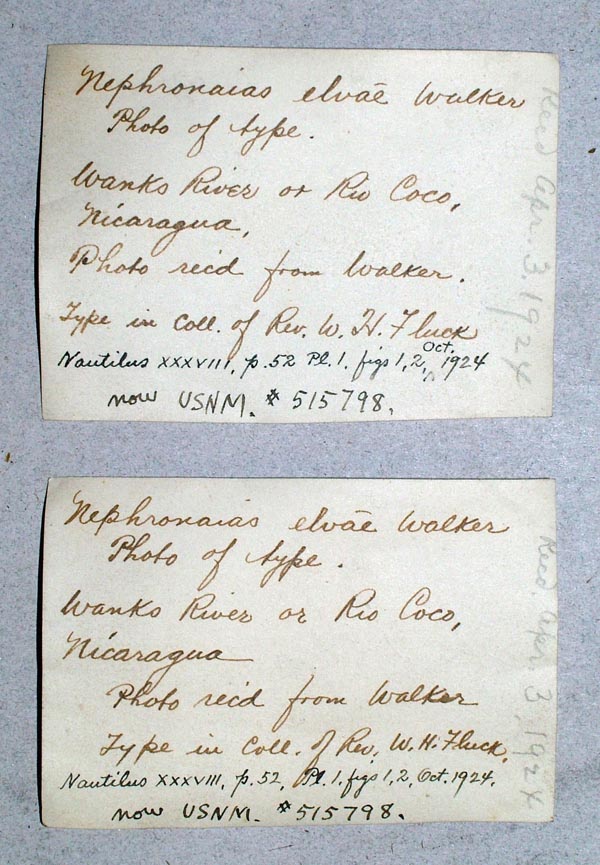 Nephronaias elvāe Walker
Photo of type.
Wanks River or Rio Coco,
Nicaragua,
Photo rec'd from Walker.
Type in Coll. of Rev. W. H. Fluck
Nautilus XXXVIII, p.52 Pl. 1. figs 1, 2, Oct. 1924
now USNM. # 515798.
Recd Apr. 3. 1924
Nephronaias elvāe Walker
Photo of type.
Wanks River or Rio Coco,
Nicaragua
Photo rec'd from Walker
Type in Coll. of Rev. W. H. Fluck.
Nautilus XXXVIII, p. 52, Pl. 1. figs 1, 2, Oct. 1924.
now USNM. # 515798.
Recd. Apr. 3, 1924